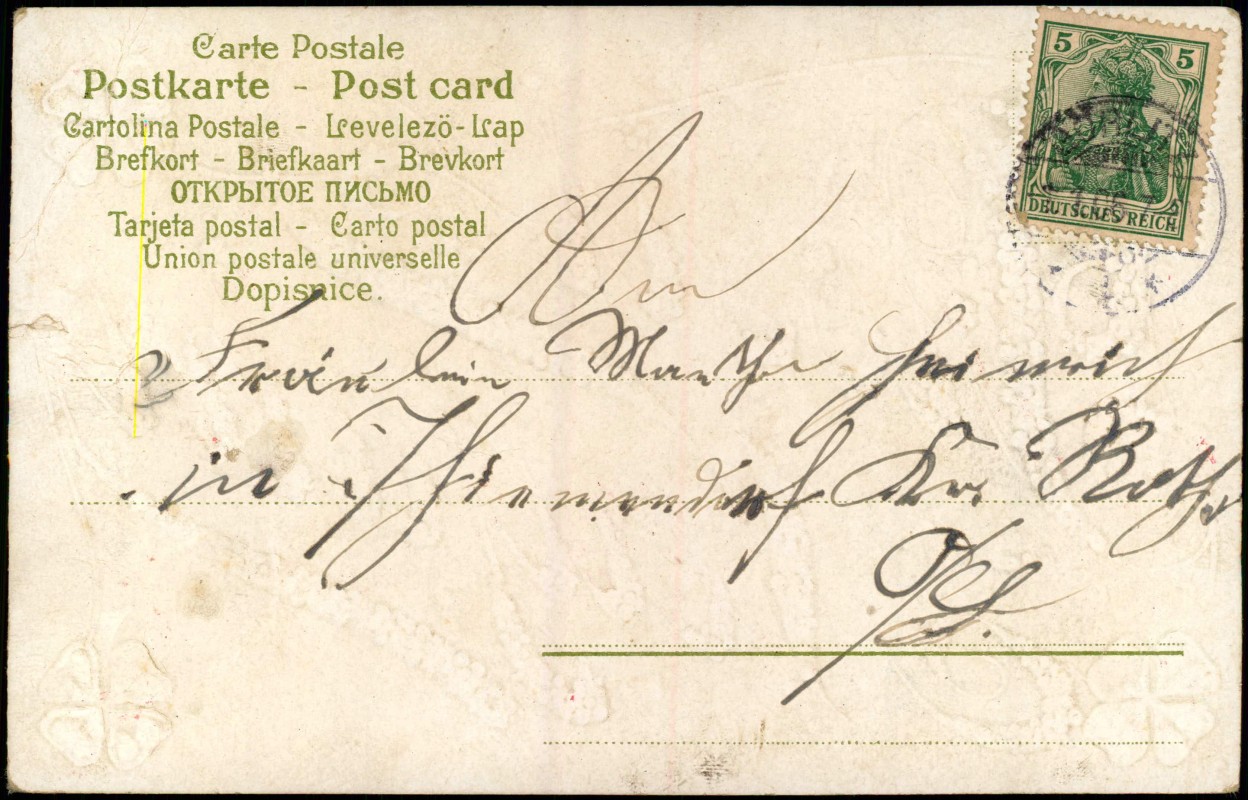 Carte Postale
Postkarte - Post card
Cartolina Postale - Levelezö-Lap
Brefkort - Briefkaart - Brevkort
ОТКРЫТОЕ ПИСЬМО
Tarjeta postal - Carto postal
Union postale universelle
Dopisnice.
5 5
DEUTSCHES REICH
An
Fräulein Martha Heinrich
in Thiemendorf Kr. Roth
O/S.